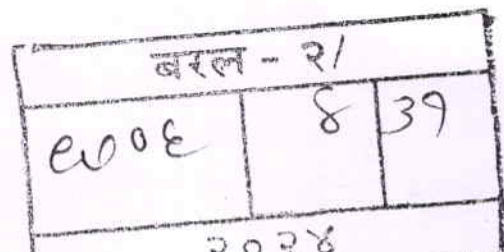 बरल - २/
९७०६ ४ ३१
२०२४